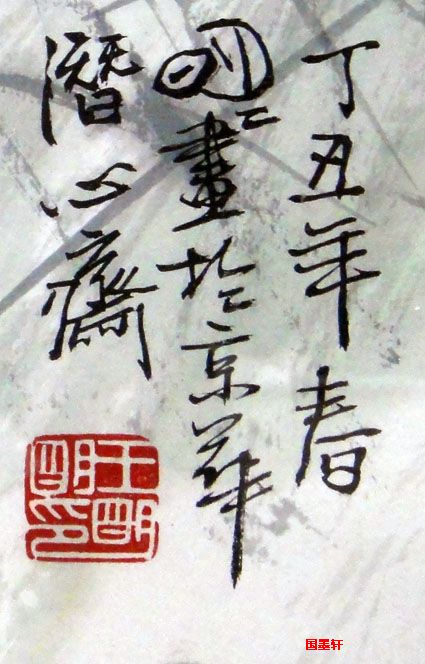 丁丑年春
明〻畫於京華
潛心齋
王明明印
国墨轩